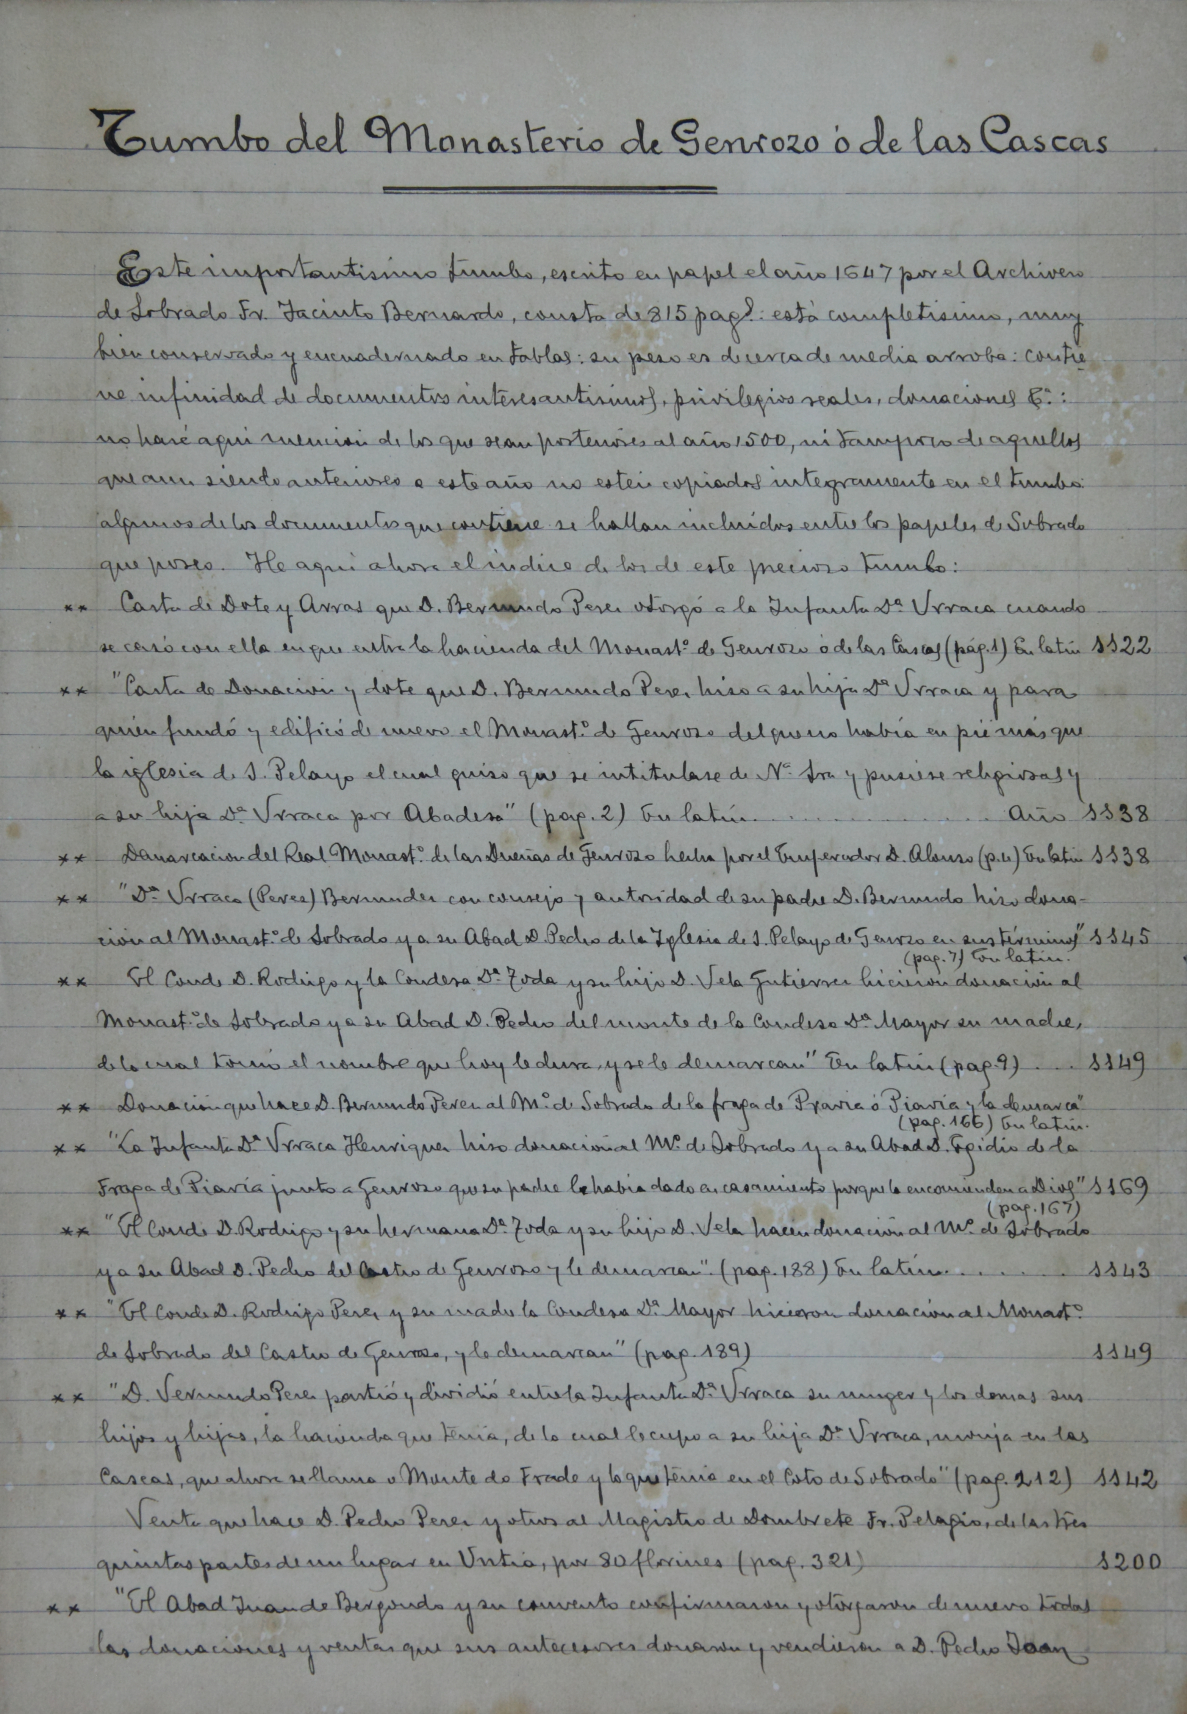 Tumbo del Monasterio de Genrozo ò de las Cascas
Este importantísimo tumbo, escrito en papel el año 1647 por el Archivero
de Sobrado Fr. Jacinto Bernardo, consta de 815 pags.: está completísimo, muy
bien conservado y encuadernado en tablas: su peso es de cerca de media arroba: contie
ne infinidad de documentos interesantísimos, privilegios reales, donaciones &ª.:
no haré aquí mención de los que sean posteriores al año 1500, ni tampoco de aquellos
que aun siendo anteriores a este año no estén copiados integramente en el tumbo:
algunos de los documentos que contiene se hallan incluídos entre los papeles de Sobrado
que poseo. He aquí ahora el índice de los de este precioso tumbo:
** Carta de Dote y Arras que D. Bermudo Perez otorgó a la Infanta Dª Urraca cuando
se casó con ella en que entra la hacienda del Monastº de Genrozo ó de las Cascas (pág. 1) En latín 1122
** "Carta de Donación y dote que D. Bermudo Perez hizo a su hija Dª Urraca y para
quién fundó y edificó de nuevo el Monastº de Genrozo del que no había en pié más que
la iglesia de S. Pelayo el cual quiso que se intitulase de Nª Sra y pusiese religiosas y
a su hija Dª Urraca por Abadesa" (pag. 2) En latín. . . . . . . . . . . . . . . Año 1138
** Demarcacion del Real Monastº de las Dueñas de Genrozo hecha por el Emperador D. Alonso (p. 4) En latín 1138
** "Dª Urraca (Perez) Bermudez con consejo y autoridad de su padre D. Bermudo hizo dona-
ción al Monastº de Sobrado y a su Abad D. Pedro de la Iglesia de S. Pelayo de Genrozo en sus términos" 1145
(pag. 7) En latín.
** El Conde D. Rodrigo y la Condesa Dª Toda y su hijo D. Vela Gutierrez hicieron donación al
Monastº de Sobrado y a su Abad D. Pedro del monte de la Condesa Dª Mayor su madre,
de la cual tomó el nombre que hoy le dura, y se le demarcan" En latín (pag. 9) . . . . 1149
** Donación que hace D. Bermudo Perez al Mº de Sobrado de la fraga de Pravia ó Piavía y la demarca"
(pag. 166) En latín.
** "La Infanta Dª Urraca Henriquez hizo donación al Mº de Sobrado y a su Abad D. Egidio de la
Fraga de Piavía junto a Genrozo que su padre le había dado en casamiento porque la encomienden a Dios" 1169
(pag. 167)
** "El Conde D. Rodrigo y su hermana Dª Toda y su hijo D. Vela hacen donación al Mº de Sobrado
y a su Abad D. Pedro del Castro de Genrozo y le demarcan". (pag. 188) En latín. . . . . . . 1143
** "El Conde D. Rodrigo Perez y su madre la Condesa Dª Mayor hicieron donación al Monastº
de Sobrado del Castro de Genrozo, y le demarcan" (pag. 189) 1149
** "D. Vermudo Perez partió y dividió entre la Infanta Dª Urraca su muger y los demas sus
hijos y hijas, la hacienda que tenía, de la cual le cupo a su hija Dª Urraca, monja en las
Cascas, que ahora se llama o Monte do Frade y lo que tenía en el Coto de Sobrado" (pag. 212) 1142
Venta que hace D. Pedro Perez y otros al Magistro de Dombrete Fr. Pelagio, de las tres
quintas partes de un lugar en Untia, por 80 florines (pag. 321) 1200
** "El Abad Juan de Bergondo y su convento confirmaron y otorgaron de nuevo todas
las donaciones y ventas que sus antecesores donaron y vendieron a D. Pedro Joan